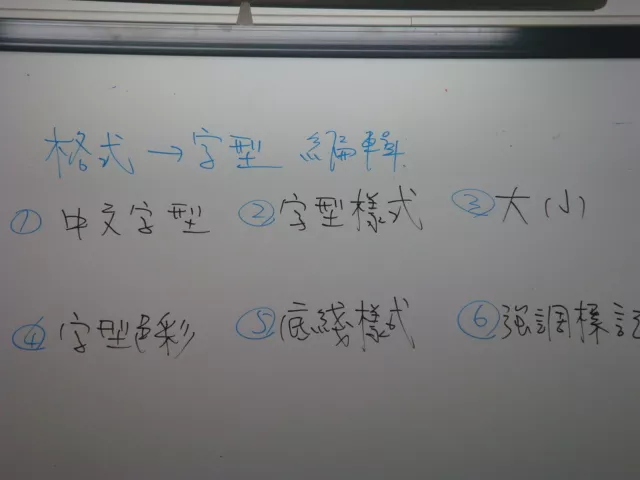 格式→字型 編輯
① 中文字型 ② 字型樣式 ③ 大小
④ 字型色彩 ⑤ 底線樣式 ⑥ 強調標記